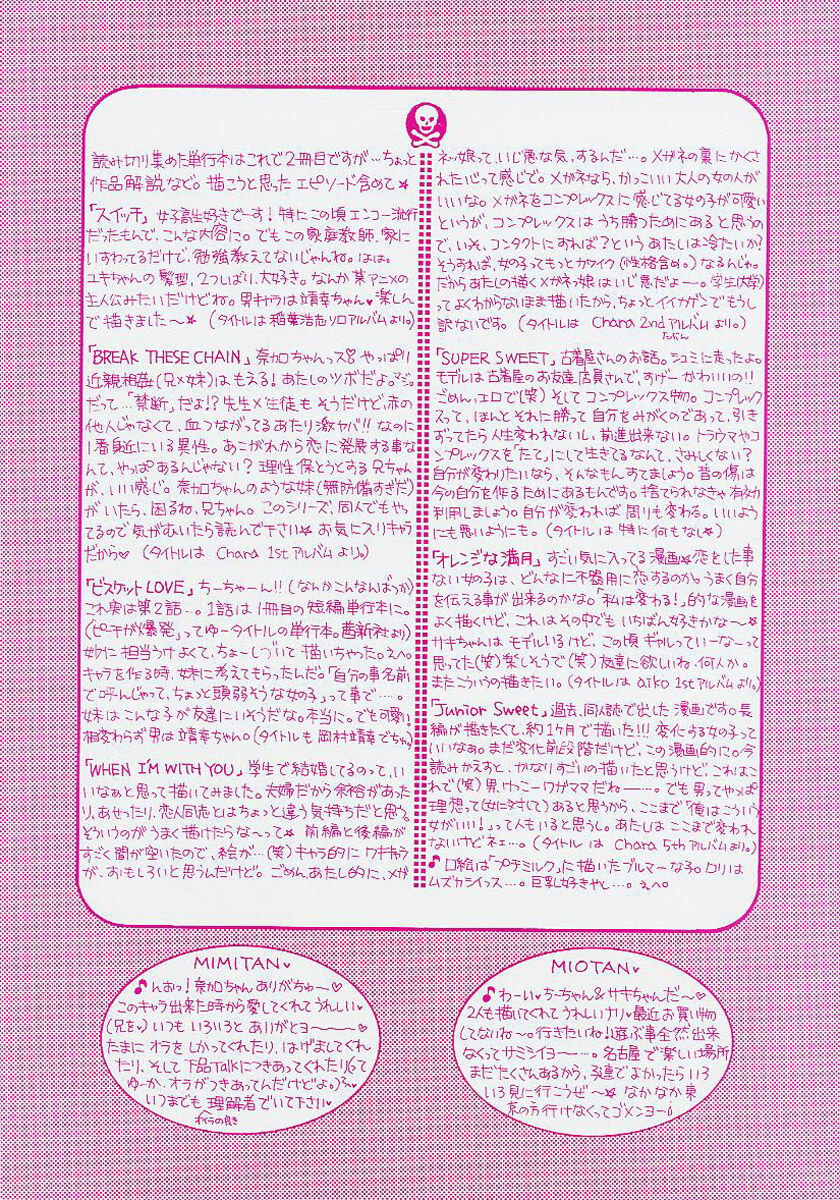 読み切り集めた単行本はこれで2冊目ですが…ちょっと
作品解説など。描こうと思ったエピソード含めて★
「スイッチ」女子高生好きでーす!特にこの頃エンコー流行
だったもんで、こんな内容に。でもこの家庭教師、家に
いすわってるだけで、勉強教えてないじゃんね。ほほ。
ユキちゃんの髪型、2つしばり、大好き。なんか某アニメの
主人公みたいだけどね。男キャラは靖幸ちゃん♥楽しん
で描きました〜★(タイトルは稲葉浩志ソロアルバムより。)
「BREAK THESE CHAIN」奈加ちゃんっス やっぱり
近親相姦(兄×妹)はもえる!あたしのツボだよ。マジ。
だって…「禁断」だよ!?先生×生徒もそうだけど、赤の
他人じゃなくて、血つながってるあたり激ヤバ!!なのに
1番身近にいる異性。あこがれから恋に発展する事な
んて、やっぱあるんじゃない?理性保とうとする兄ちゃん
が、いい感じ。奈加ちゃんのような妹(無防備すぎだ)
がいたら、困るね、兄ちゃん。このシリーズ、同人でもや
てるので気がむいたら読んで下さい★お気に入りキャラ
だから♥(タイトルは Chara 1stアルバムより。)
「ビスケットLOVE」ちーちゃーん!!(なんかこんなんばっか)
これ実は第2話…。1話は1冊目の短編単行本に。
(「ピーチが爆発」ってゆータイトルの単行本。茜新社より)
妙に担当うけよくて、ちょーしづいて描いちゃった。えへ。
キャラを作る時、妹に考えてもらったんだ。「自分の事名前
で呼んじゃって、ちょっと頭弱そうな女の子」って事で…。
妹はこんな子が友達にいそうだな。本当に。でも可愛い
相変わらず男は靖幸ちゃん。(タイトルも岡村靖幸でちゅ)
「WHEN I'M WITH YOU」学生で結婚してるのって、い
いなぁと思って描いてみました。夫婦だから余裕があった
り、あせったり、恋人同志とはちょっと違う気持ちだと思う。
そういうのがうまく描けたらな〜って★ 前編と後編が
すごく間が空いたので、絵が…(笑)キャラ的にワキキャラ
が、おもしろいと思うんだけど。ごめん、あたし的に、メガ
ネッ娘って、いじ悪な気、するんだ…。メガネの裏にかくさ
れた心って感じで。メガネなら、かっこいい大人の女の人が
いいな。メガネをコンプレックスに感じてる女の子が可愛い
というが、コンプレックスはうち勝つためにあると思うの
で、いっそ、コンタクトにすれば?というあたしは冷たいか?
そうすれば、女の子ってもっとカワイク(性格含め。)なるんじゃ。
だからあたしの描くメガネっ娘はいじ悪だよー。学生(大学)
ってよくわからないまま描いたから、ちょっとイイカゲンでもうし
訳ないです。(タイトルは Chara 2ndアルバムより。)
たぶん
「SUPER SWEET」古着屋さんのお話。シュミに走ったよ。
モデルは古着屋のお友達店員さんで、すげーかわいいの!!
ごめん、エロで(笑)そしてコンプレックス物。コンプレック
スって、ほんとそれに勝って自分をみがくのであって、引き
ずってたら人生変われないし、前進出来ない。トラウマやコ
ンプレックスを「たて」にして生きてるなんて、さみしくない?
自分が変わりたいなら、そんなもんすてましょう。昔の傷は
今の自分を作るためにあるもんです。捨てられなきゃ有効
利用しましょう。自分が変われば周りも変わる。いいよう
にも悪いようにも。(タイトルは特に何もなし★)
「オレンジな満月」すごい気に入ってる漫画★恋をした事
ない女の子は、どんなに不器用に恋するのか。うまく自分
を伝える事が出来るのかな。「私は変わる!」的な漫画を
よく描くけど、これはその中でもいちばん好きかな〜★
サキちゃんはモデルいるけど、この頃ギャルっていーな〜って
思ってた(笑)楽しそうで(笑)友達に欲しいね。何人か。
またこういうの描きたい。(タイトルは aiko 1stアルバムより。)
「Junior Sweet」過去、同人誌で出した漫画です。長
編が描きたくて、約1ヶ月で描いた!!!変化する女の子って
いいなぁ。まだ変化前段階だけど、この漫画的に。今
読みかえすと、かなりすごいの描いたと思うけど、これはこ
れで(笑)男けっこーワガママだね——。でも男ってやっぱ
理想って(女に対して)あると思うから、ここまで「俺はこういう
女がいい!」って人もいると思うし。あたしはここまで変われ
ないけどネェ…。(タイトルは Chara 5thアルバムより。)
♪口絵は「プチミルク」に描いたブルマーな子。ロリは
ムズカシイっス…。巨乳好きやし…。えへ。
MIMITAN♥
♪んおっ!奈加ちゃんありがちゅ〜♡
このキャラ出来た時から愛してくれてうれしい♥
(兄を♥)いつもいろいろとありがとヨ〜〜〜♥
たまにオラをしかってくれたり、はげましてくれ
たり、そして下品Talkにつきあってくれたり(って
ゆーか、オラがつきあってんだけどよ。)ふ♥
いつまでも理解者でいて下さい♥
オイラの良き
MIOTAN♥
♪わーい♥ちーちゃん&サキちゃんだ〜♡
2人も描いてくれてうれしいナリ♥最近お買い物
してないね〜。行きたいね!遊ぶ事全然出来
なくってサミシイヨー…。名古屋で楽しい場所
まだたくさんあるから、3連でよかったらいろ
いろ見に行こうぜ〜★なかなか東
京の方行けなくってゴメンヨー